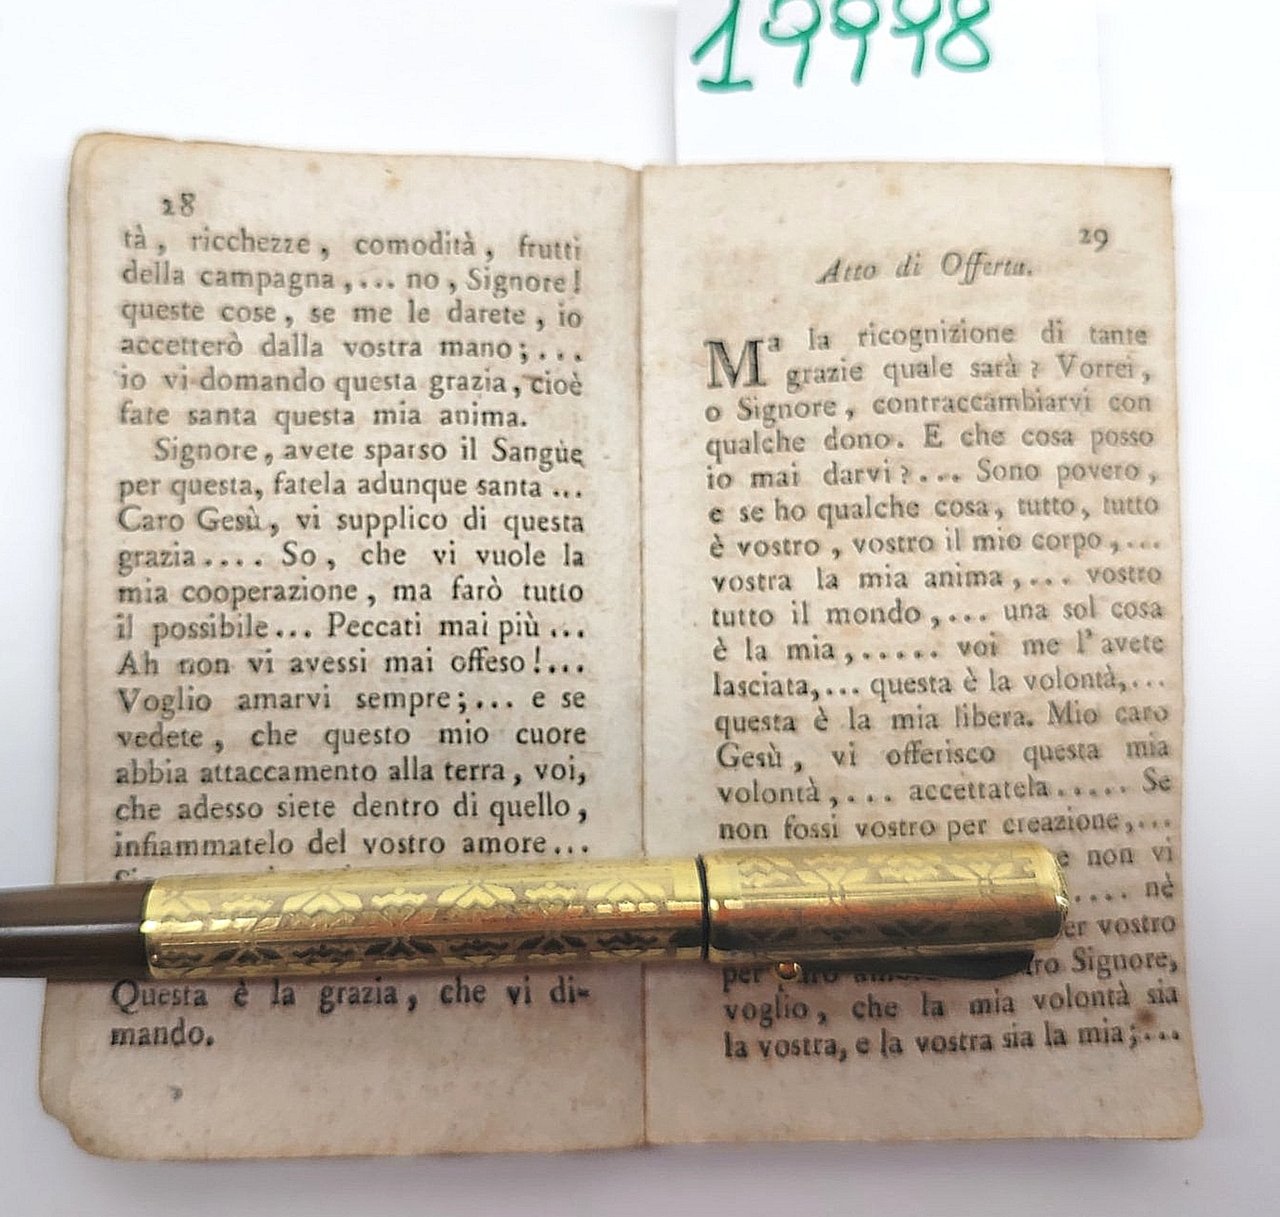 19998
28
tà, ricchezze, comodità, frutti
della campagna,... no, Signore!
queste cose, se me le darete, io
accetterò dalla vostra mano;...
io vi domando questa grazia, cioè
fate santa questa mia anima.
Signore, avete sparso il Sangue
per questa, fatela adunque santa...
Caro Gesù, vi supplico di questa
grazia.... So, che vi vuole la
mia cooperazione, ma farò tutto
il possibile... Peccati mai più...
Ah non vi avessi mai offeso!...
Voglio amarvi sempre;... e se
vedete, che questo mio cuore
abbia attaccamento alla terra, voi,
che adesso siete dentro di quello,
infiammatelo del vostro amore...
Questa è la grazia, che vi di-
mando.
29
Atto di Offerta.
Ma la ricognizione di tante
grazie quale sarà? Vorrei,
o Signore, contraccambiarvi con
qualche dono. E che cosa posso
io mai darvi?... Sono povero,
e se ho qualche cosa, tutto, tutto
è vostro, vostro il mio corpo,...
vostra la mia anima,... vostro
tutto il mondo,... una sol cosa
è la mia,..... voi me l'avete
lasciata,... questa è la volontà,...
questa è la mia libera. Mio caro
Gesù, vi offerisco questa mia
volontà,... accettatela..... Se
non fossi vostro per creazione,...
e non vi
.... nè
er vostro
per Signore,
voglio, che la mia volontà sia
la vostra, e la vostra sia la mia;...